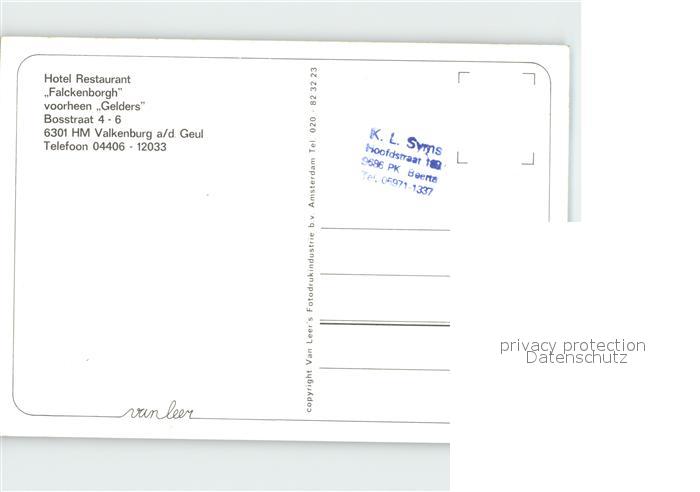 Hotel Restaurant
„Falckenborgh”
voorheen „Gelders”
Bosstraat 4 - 6
6301 HM Valkenburg a/d Geul
Telefoon 04406 - 12033
copyright Van Leer's Fotodrukindustrie b.v. Amsterdam Tel. 020 - 82 32 23
K. L. Syms
Hoofdstraat
9686 PK Beerta
Tel. 05971-1337
van leer
privacy protection
Datenschutz